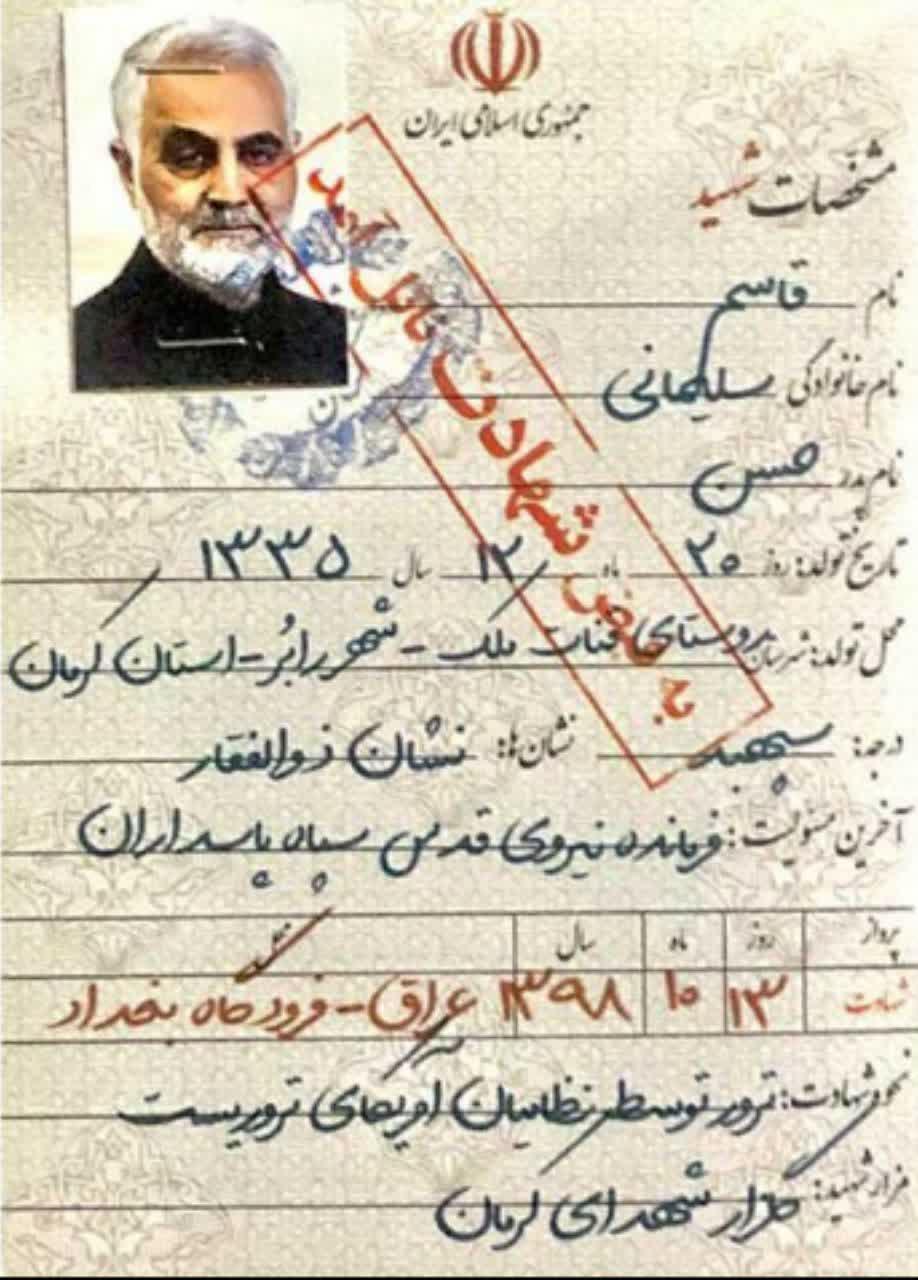 جمهوری اسلامی ایران
مشخصات شهید
نام قاسم
نام خانوادگی سلیمانی
نام پدر حسن
تاریخ تولد: روز ۲۰ ماه ۱۲ سال ۱۳۳۵
محل تولد: شهرستان روستای قنات ملک - شهر رابُر - استان کرمان
درجه: سپهبد نشان ها: نشان ذوالفقار
آخرین مسئولیت: فرمانده نیروی قدس سپاه پاسداران
پرواز روز ماه سال محل
شهادت ۱۳ ۱۰ ۱۳۹۸ عراق - فرودگاه بغداد
نحوه شهادت: ترور توسط نظامیان آمریکای تروریست
مزار شهید: گلزار شهدای کرمان
به فیض شهادت نائل آمد